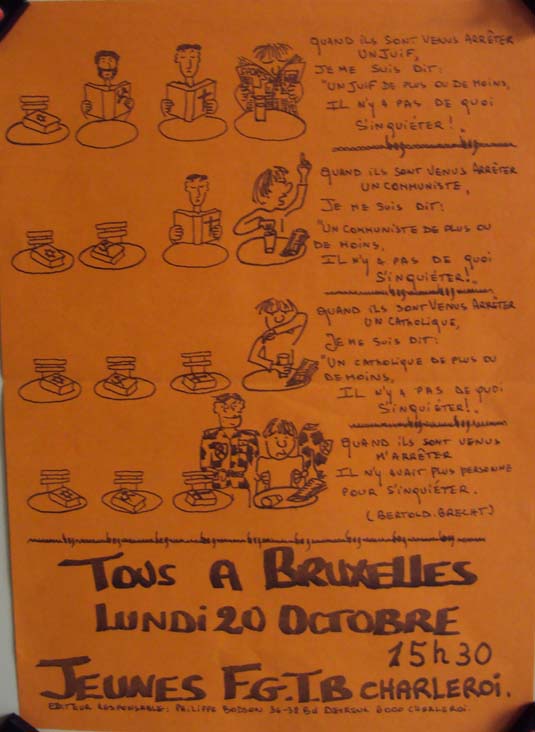 QUAND ILS SONT VENUS ARRÊTER
UN JUIF,
JE ME SUIS DIT:
"UN JUIF DE PLUS OU DE MOINS,
IL N'Y A PAS DE QUOI
S'INQUIÉTER!"
QUAND ILS SONT VENUS ARRÊTER
UN COMMUNISTE,
JE ME SUIS DIT:
"UN COMMUNISTE DE PLUS OU
DE MOINS,
IL N'Y A PAS DE QUOI
S'INQUIÉTER!"
QUAND ILS SONT VENUS ARRÊTER
UN CATHOLIQUE,
JE ME SUIS DIT:
"UN CATHOLIQUE DE PLUS OU
DE MOINS,
IL N'Y A PAS DE QUOI
S'INQUIÉTER!"
QUAND ILS SONT VENUS
M'ARRÊTER
IL N'Y AVAIT PLUS PERSONNE
POUR S'INQUIÉTER.
(BERTOLD.BRECHT)
TOUS A BRUXELLES
LUNDI 20 OCTOBRE
15h30
JEUNES F.G.T.B CHARLEROI.
EDITEUR RESPONSABLE: PHILIPPE BODSON 36-38 Bd DEVREUX 6000 CHARLEROI.